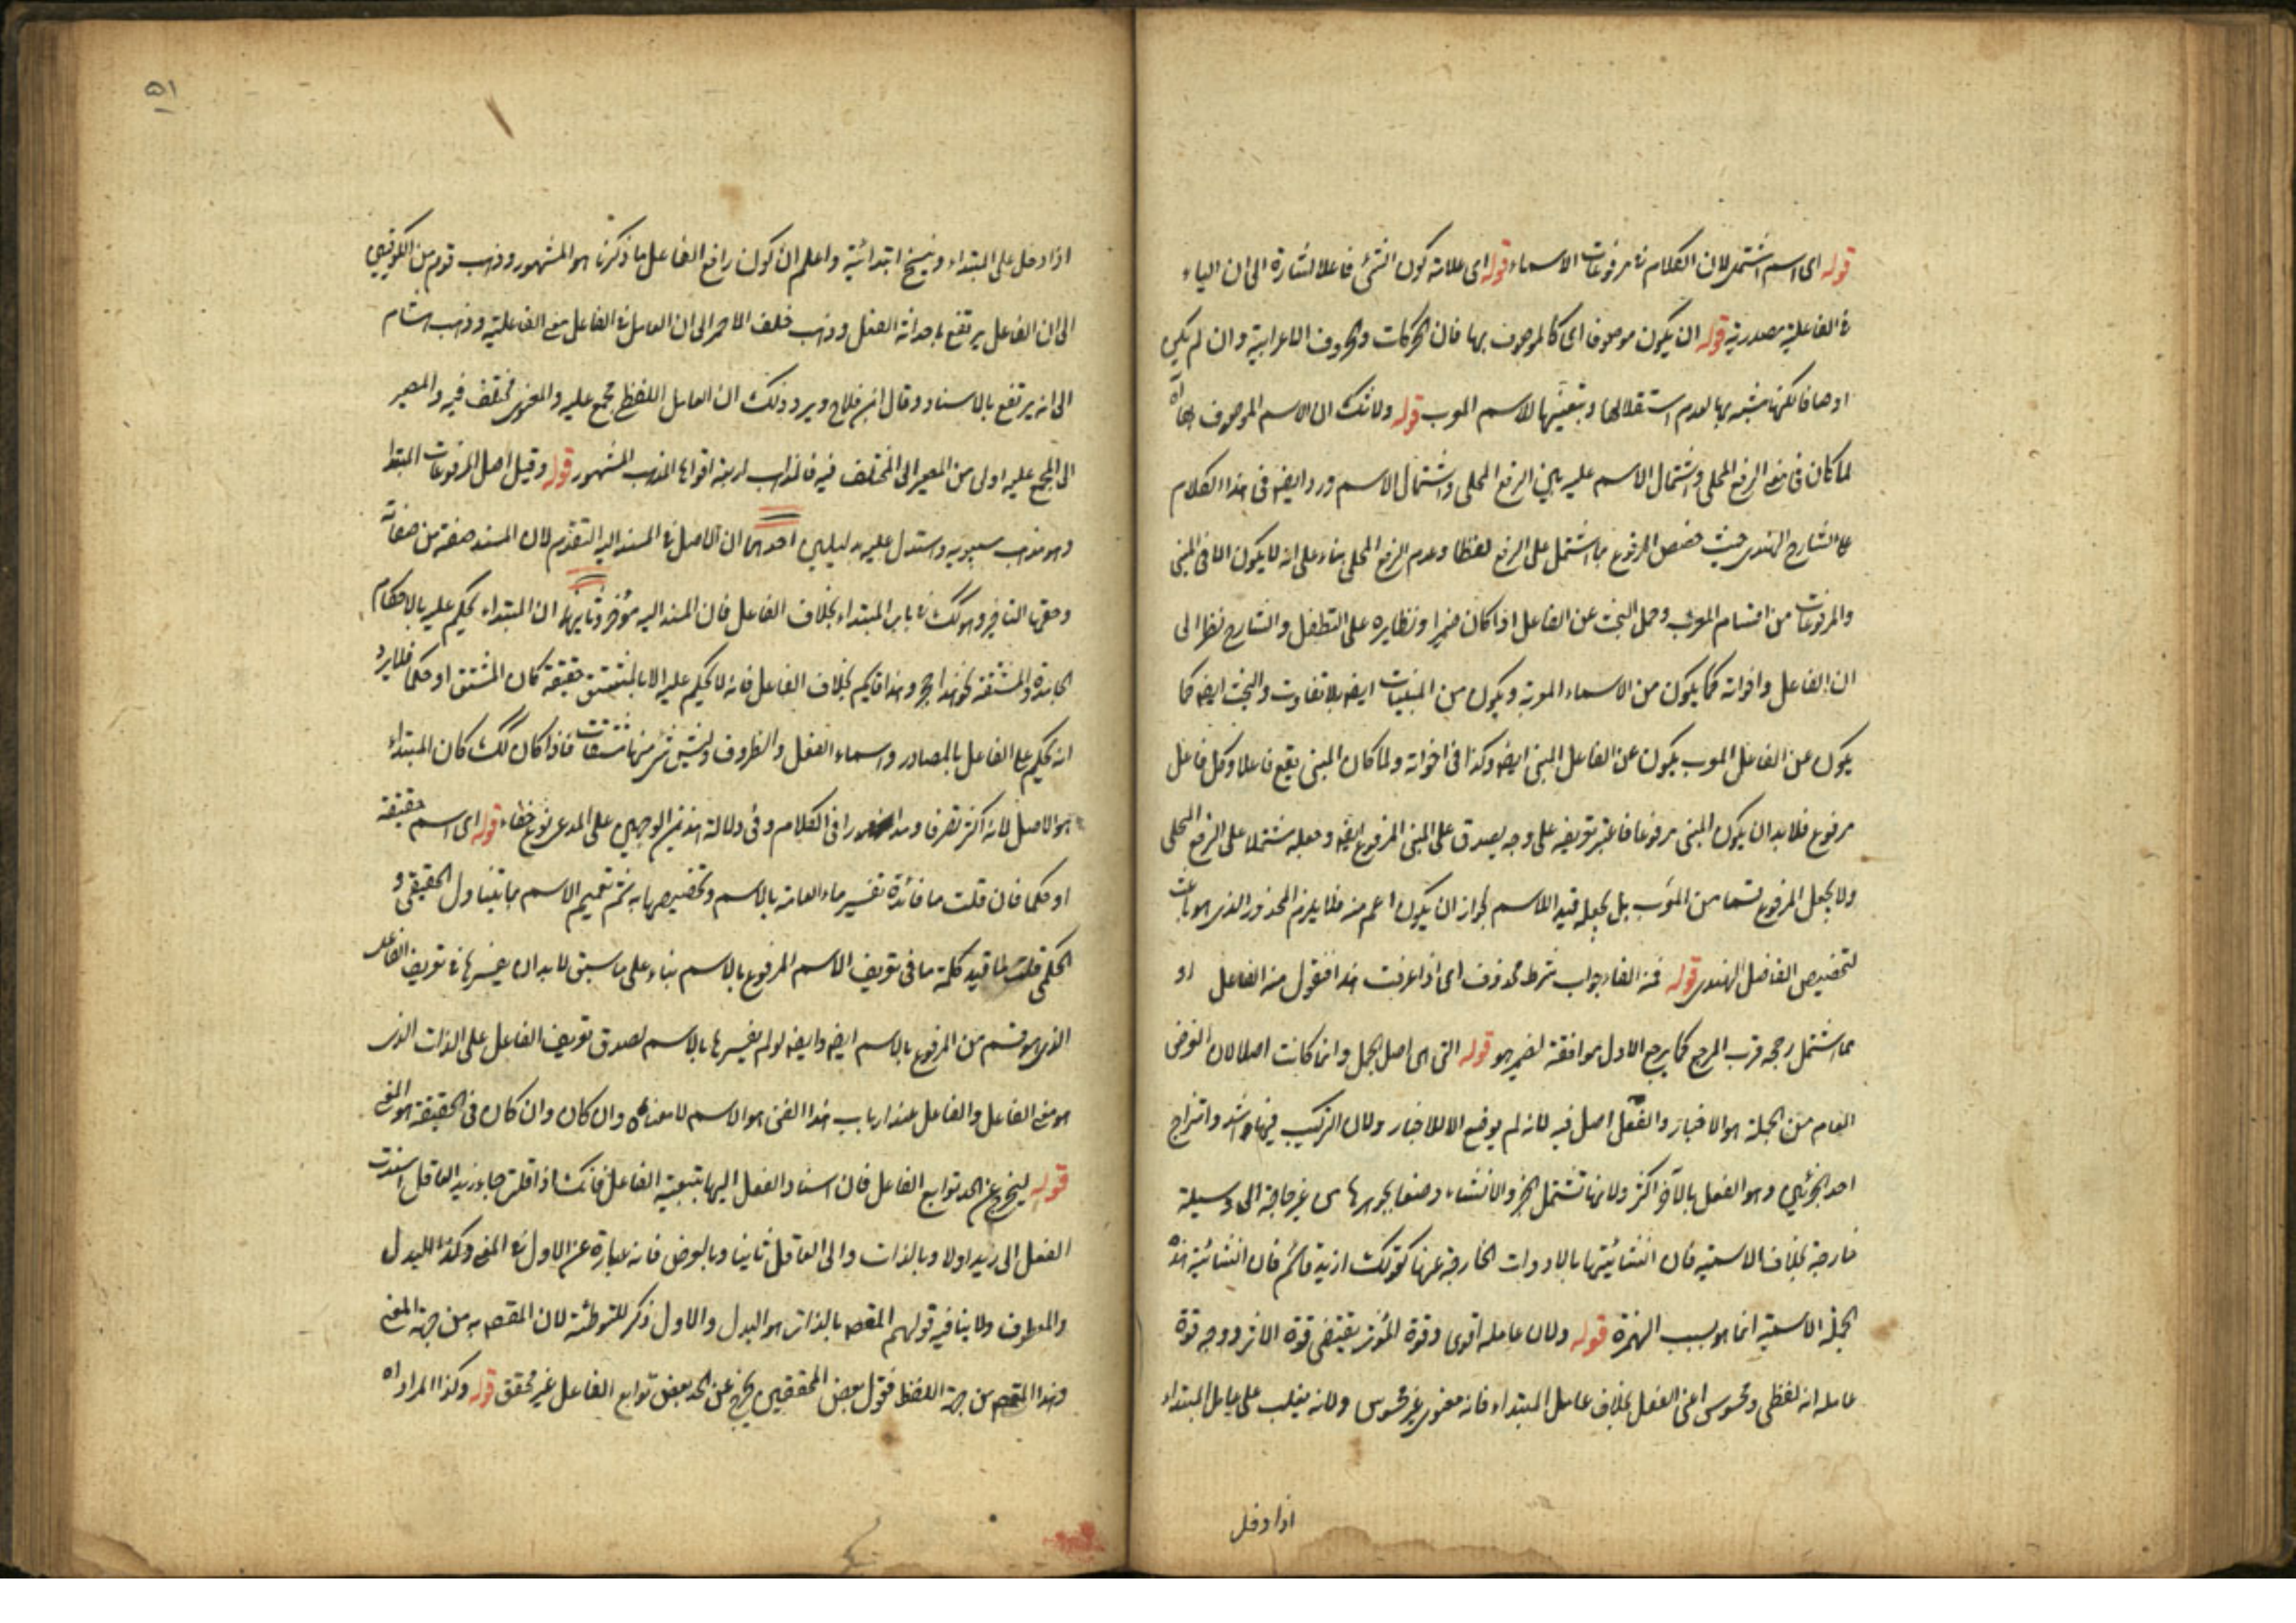 قوله اى اسم اشتمل لان الكلام فى مرفوعات الاسماء قوله اى علامة كون الشئ فاعلا اشارة الى ان الياء
فى الفاعلية مصدرية قوله ان يكون موصوفا اى كالموصوف بها فان الحركات والحروف الاعرابية وان لم يكن
اوصافا لكنها مشبه بها لعدم استقلالها وتبعيتها للاسم المعرب قوله ولا شك ان الاسم الموصوف اه
لما كان فى معنى الرفع المحلى واشتمال الاسم عليه بين الرفع المحلى واشتمال الاسم ورد ايضا فى هذا الكلام
على الشارح الهندى حيث خصص المرفوع بما اشتمل على الرفع لفظا وعدم الرفع المحلى بناء على انه لا يكون الا فى المبنى
والمرفوعات من اقسام المعرب وحمل البحث عن الفاعل اذا كان ضميرا ونظايره على التطفل والشارح نظر الى
ان الفاعل واخواته كما يكون من الاسماء المعربة ويكون من المبنيات ايضا بلا تفاوت والبحث ايضا كما
يكون عن الفاعل المعرب يكون عن الفاعل المبنى ايضا وكذا فى اخواته ولما كان المبنى يقع فاعلا وكل فاعل
مرفوع فلا بد ان يكون المبنى مرفوعا فاعتبر تعريفه على وجه يصدق على المبنى المرفوع ايضا وجعله مشتملا على الرفع المحلى
ولا يجعل المرفوع قسما من المعرب بل يجعله قيد الاسم لجواز ان يكون اعم منه فلا يلزم المحذور الذى هو باعث
لتخصيص الفاضل الهندى قوله فمنه الفاء جواب شرط محذوف اى اذا عرفت هذا فنقول منه الفاعل او
مما اشتمل رجحه قرب المرجع كما يرجح الاول موافقة لضمير هو قوله التى هى اصل الجمل وانما كانت اصلا لان الغرض
العام من الجملة هو الاخبار والفعل اصل فيه لانه لم يوضع الا للاخبار ولان التركيب فيها اشد وامتزاج
احد الجزئين وهو الفعل بالآخر اكثر ولانها تشتمل الخبر والانشاء وضعا بجوهرها من غير حاجة الى وسيلة
خارجة بخلاف الاسمية فان انشائيتها بالادوات الخارجة عنها كقولك ازيد قائم فان انشائية هذه
الجملة الاسمية انما هو بسبب الهمزة قوله ولان عامله اقوى وقوة المؤثر يقتضى قوة الاثر ووجه قوة
عامله انه لفظى ومحسوس اعنى الفعل بخلاف عامل المبتداء فانه معنوى غير محسوس ولانه يغلب على عامل المبتداء
اذا دخل
٥١
اذا دخل على المبتداء وينسخ ابتدائيته واعلم ان كون رافع الفاعل ما ذكرنا هو المشهور وذهب قوم من الكوفيين
الى ان الفاعل يرتفع باحداثه الفعل وذهب خلف الاحمر الى ان العامل فى الفاعل معنى الفاعلية وذهب هشام
الى انه يرتفع بالاسناد وقال ابن فلاح ويرد ذلك ان العامل اللفظى مجمع عليه والمعنوى مختلف فيه والمصير
الى المجمع عليه اولى من المصير الى المختلف فيه فالمذاهب اربعة اقواها المذهب المشهور قوله وقيل اصل المرفوعات المبتدا
وهو مذهب سيبويه واستدل عليه بدليلين احدهما ان الاصل فى المسند اليه التقديم لان المسند صفة من صفاته
وحقها التاخير وهو كذلك فى باب المبتداء بخلاف الفاعل فان المسند اليه مؤخر وثانيهما ان المبتداء يحكم عليه بالاحكام
الجامدة والمشتقة نحو هذا حجر وهذا قايم بخلاف الفاعل فانه لا يحكم عليه الا بالمشتق حقيقة كان المشتق او حكما فلا يرد
انه يحكم على الفاعل بالمصادر واسماء الفعل والظروف وليس شئ منها مشتقات فاذا كان كذلك كان المبتداء
هو الاصل لانه اكثر تصرفا ودورا فى الكلام وفى دلالة هذين الوجهين على المدعى نوع خفاء قوله اى اسم حقيقة
او حكما فان قلت ما فائدة تفسير ماء العامة بالاسم وتخصيصها به ثم تعميم الاسم بما يتناول الحقيقى و
الحكمى قلت لما قيد كلمة ما فى تعريف الاسم المرفوع بالاسم بناء على ما سبق لا بد ان يفسرها فى تعريف الفاعل
الذى هو قسم من المرفوع بالاسم ايضا وايضا لو لم يفسرها بالاسم لصدق تعريف الفاعل على الذات الذى
هو معنى الفاعل والفاعل عند ارباب هذا الفن هو الاسم لا معناه وان كان وان كان فى الحقيقة هو المعنى
قوله ليخرج عن الحد توابع الفاعل فان اسناد الفعل اليها بتبعية الفاعل فانك اذا قلت جاء زيد العاقل اسندت
الفعل الى زيد اولا وبالذات والى العاقل ثانيا وبالعرض فانه عبارة عن الاول فى المعنى وكذا البدل
والمعطوف ولا ينافيه قولهم المقصود بالذات هو البدل والاول ذكر للتوطئة لان المقصود به من جهة المعنى
وهذا المقصود من جهة اللفظ فقول بعض المحققين يخرج عن الحد بعض توابع الفاعل غير محقق قوله وكذا المراد اه